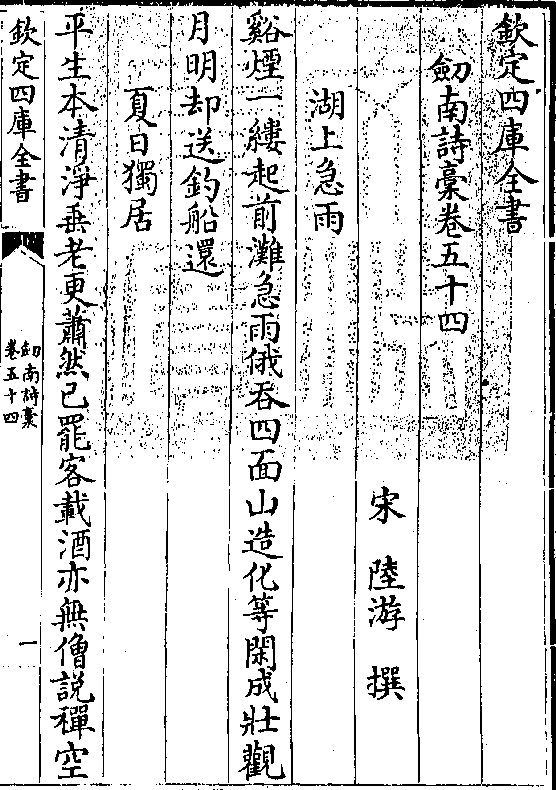 欽定四庫全書
劒南詩稾卷五十四
宋　陸游　撰
湖上急雨
谿煙一縷起前灘急雨俄吞四面山造化等閑成壯觀
月明却送釣船還
夏日獨居
平生本清淨垂老更蕭然已罷客載酒亦無僧說禪空
欽定四庫全書
劒南詩稾
卷五十四
一